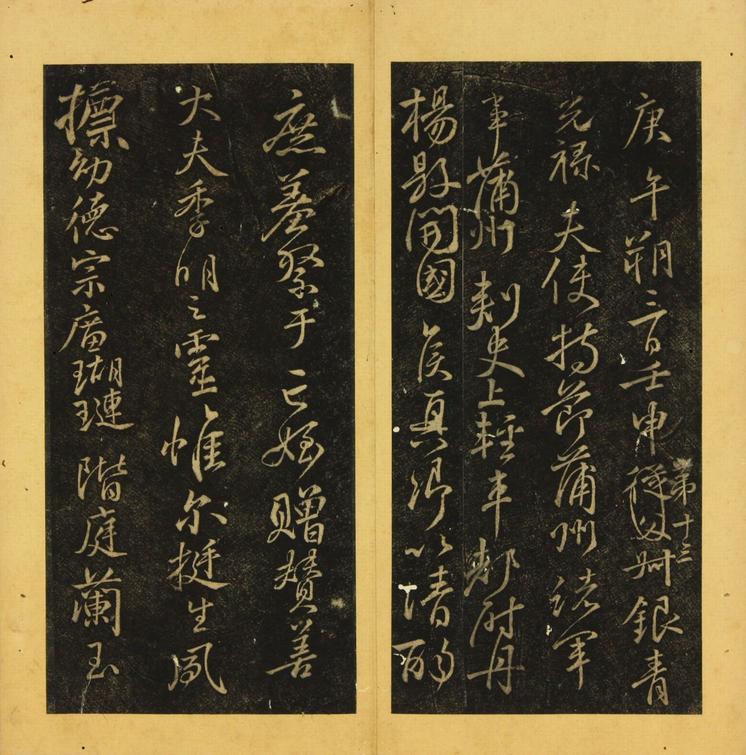 庚午朔三日壬申從父叔銀青
第十三
光祿夫使持節蒲州諸軍
事蒲州刺史上輕車都尉丹
楊縣開國侯真卿以清酌
庶羞祭于亡姪贈贊善
大夫季明之靈惟尔挺生夙
標幼德宗廟瑚璉階庭蘭玉